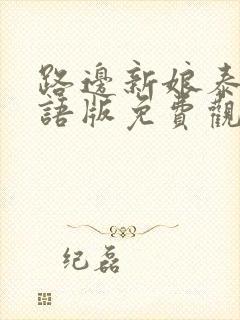 路邊新娘泰
語版免費觀
纪磊